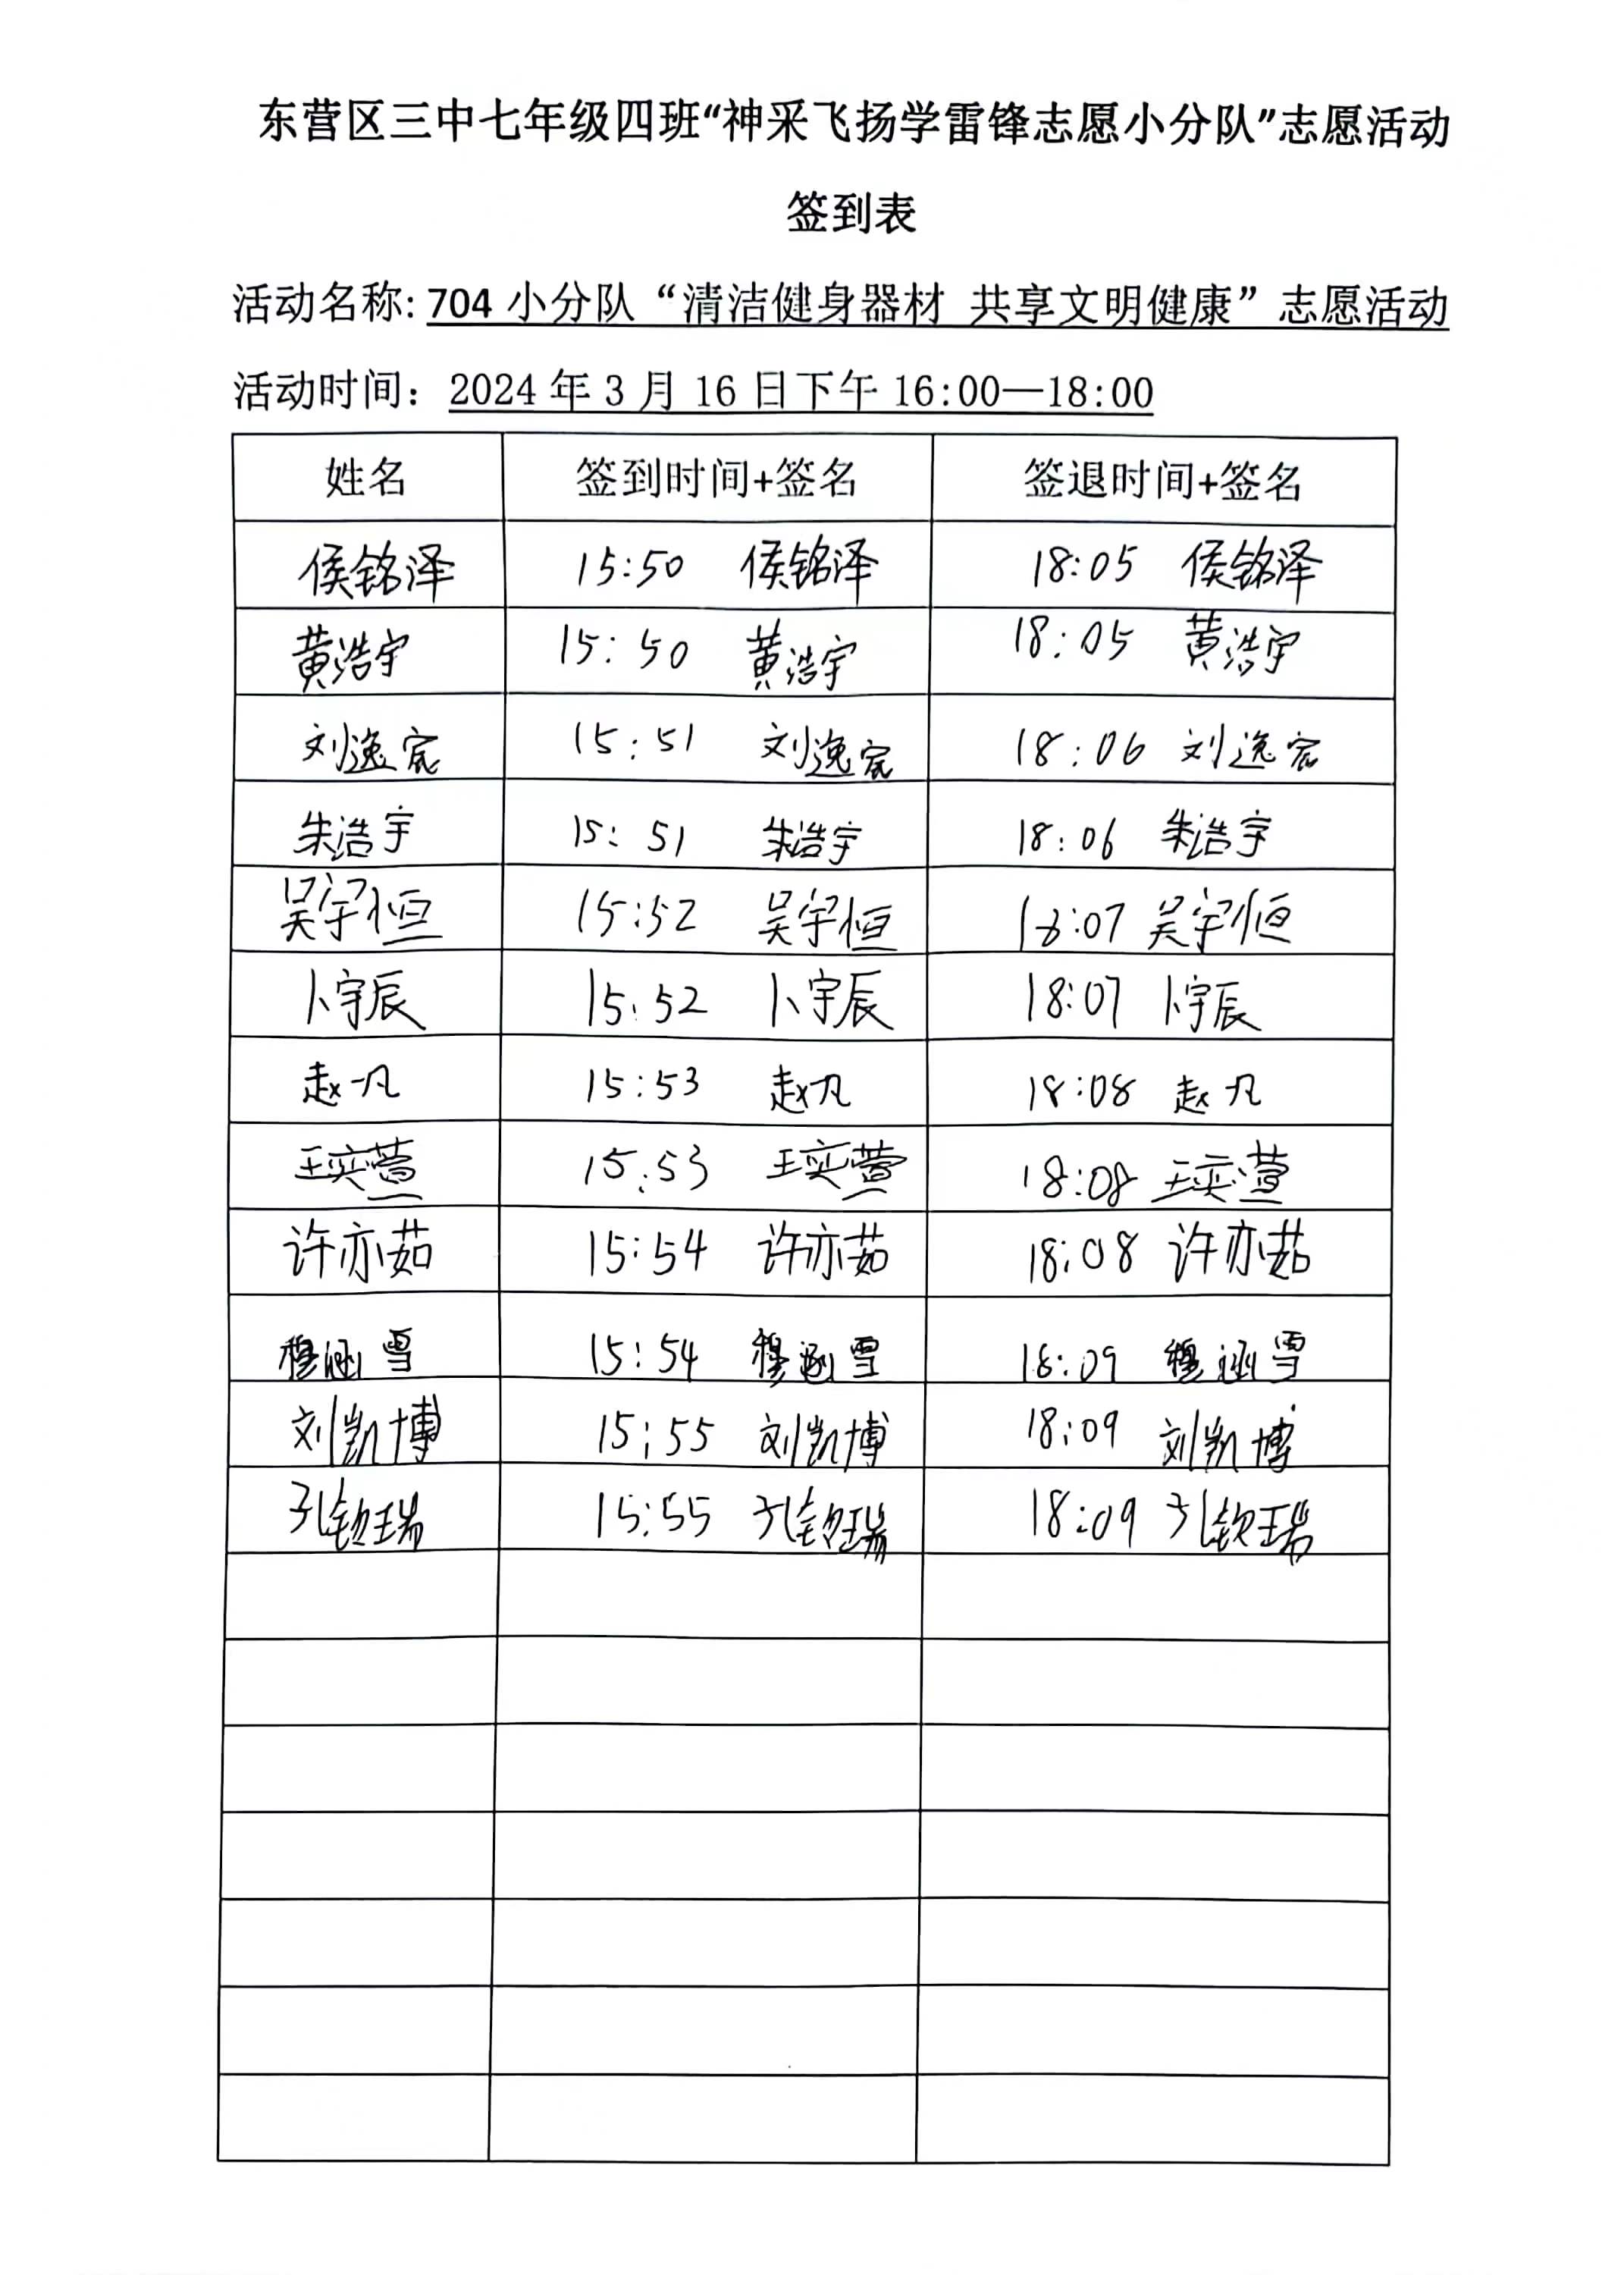 东营区三中七年级四班“神采飞扬学雷锋志愿小分队”志愿活动
签到表
活动名称: 704 小分队“清洁健身器材 共享文明健康”志愿活动
活动时间：2024 年 3 月 16 日下午 16:00—18:00
姓名 签到时间+签名 签退时间+签名
侯铭泽 15:50 侯铭泽 18:05 侯铭泽
黄浩宇 15:50 黄浩宇 18:05 黄浩宇
刘逸宸 15:51 刘逸宸 18:06 刘逸宸
朱浩宇 15:51 朱浩宇 18:06 朱浩宇
吴宇恒 15:52 吴宇恒 18:07 吴宇恒
卜宇辰 15:52 卜宇辰 18:07 卜宇辰
赵一凡 15:53 赵凡 18:08 赵凡
王奕萱 15:53 王奕萱 18:08 王奕萱
许亦茹 15:54 许亦茹 18:08 许亦茹
穆涵雪 15:54 穆涵雪 18:09 穆涵雪
刘凯博 15:55 刘凯博 18:09 刘凯博
孔钦瑞 15:55 孔钦瑞 18:09 孔钦瑞